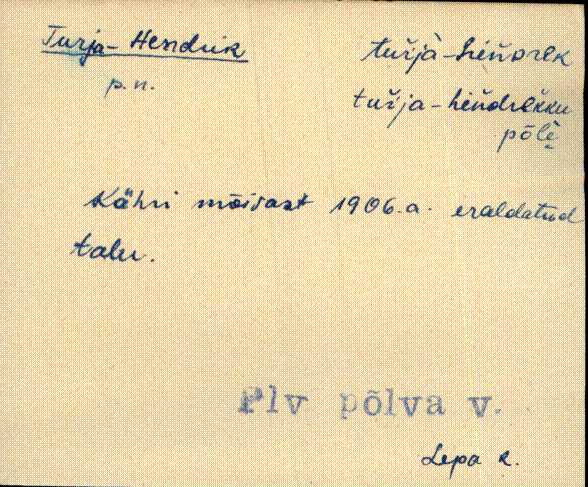 Turja-Hendrik
tuŕjà-hińdrek
p.n.
tuŕja-hińdrekku
põlè
Kähri mõisast 1906.a. eraldatud
talu.
Plv põlva v.
Lepa k.